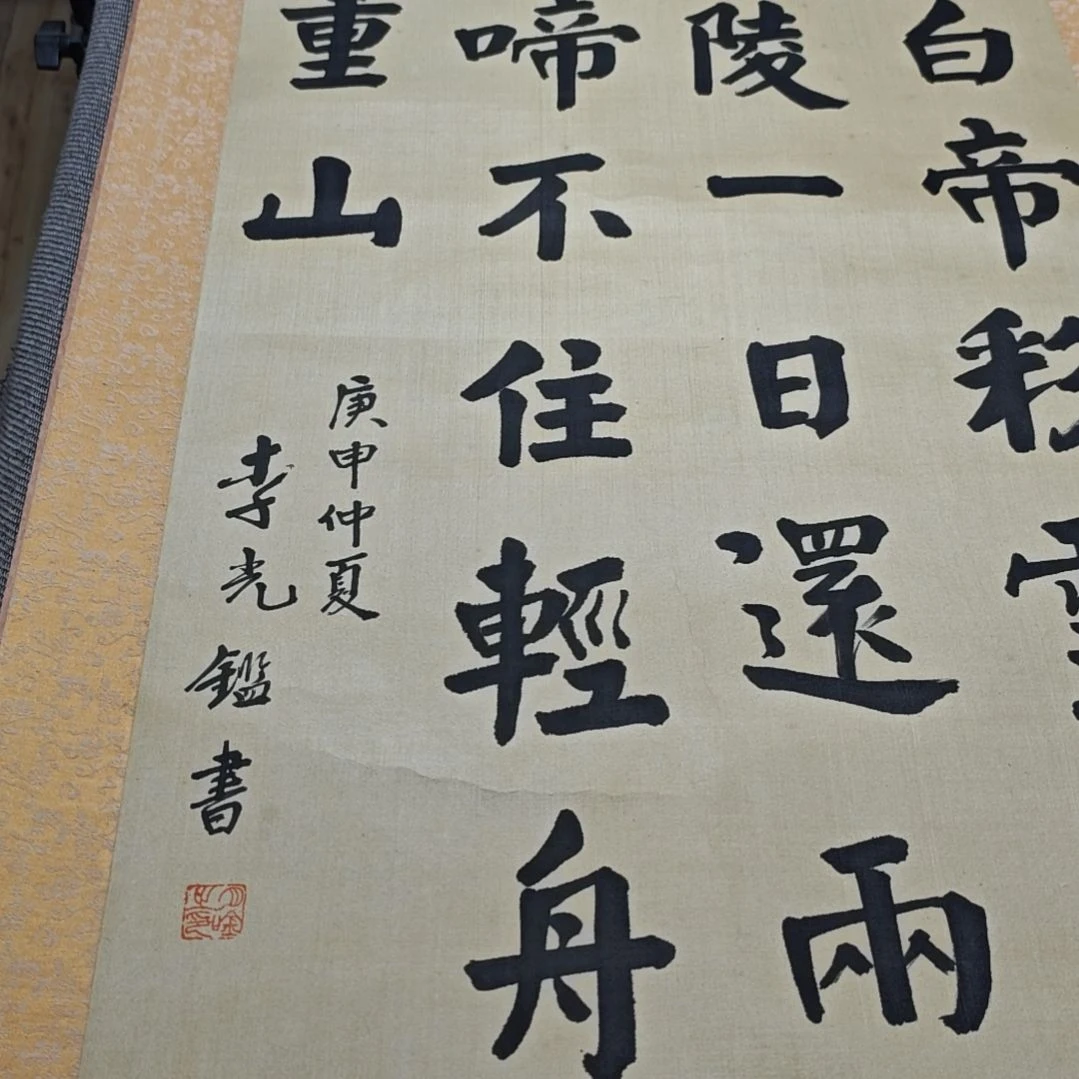 白帝彩雲
陵一日還兩
啼不住輕舟
重山
庚申仲夏
李光鑑書